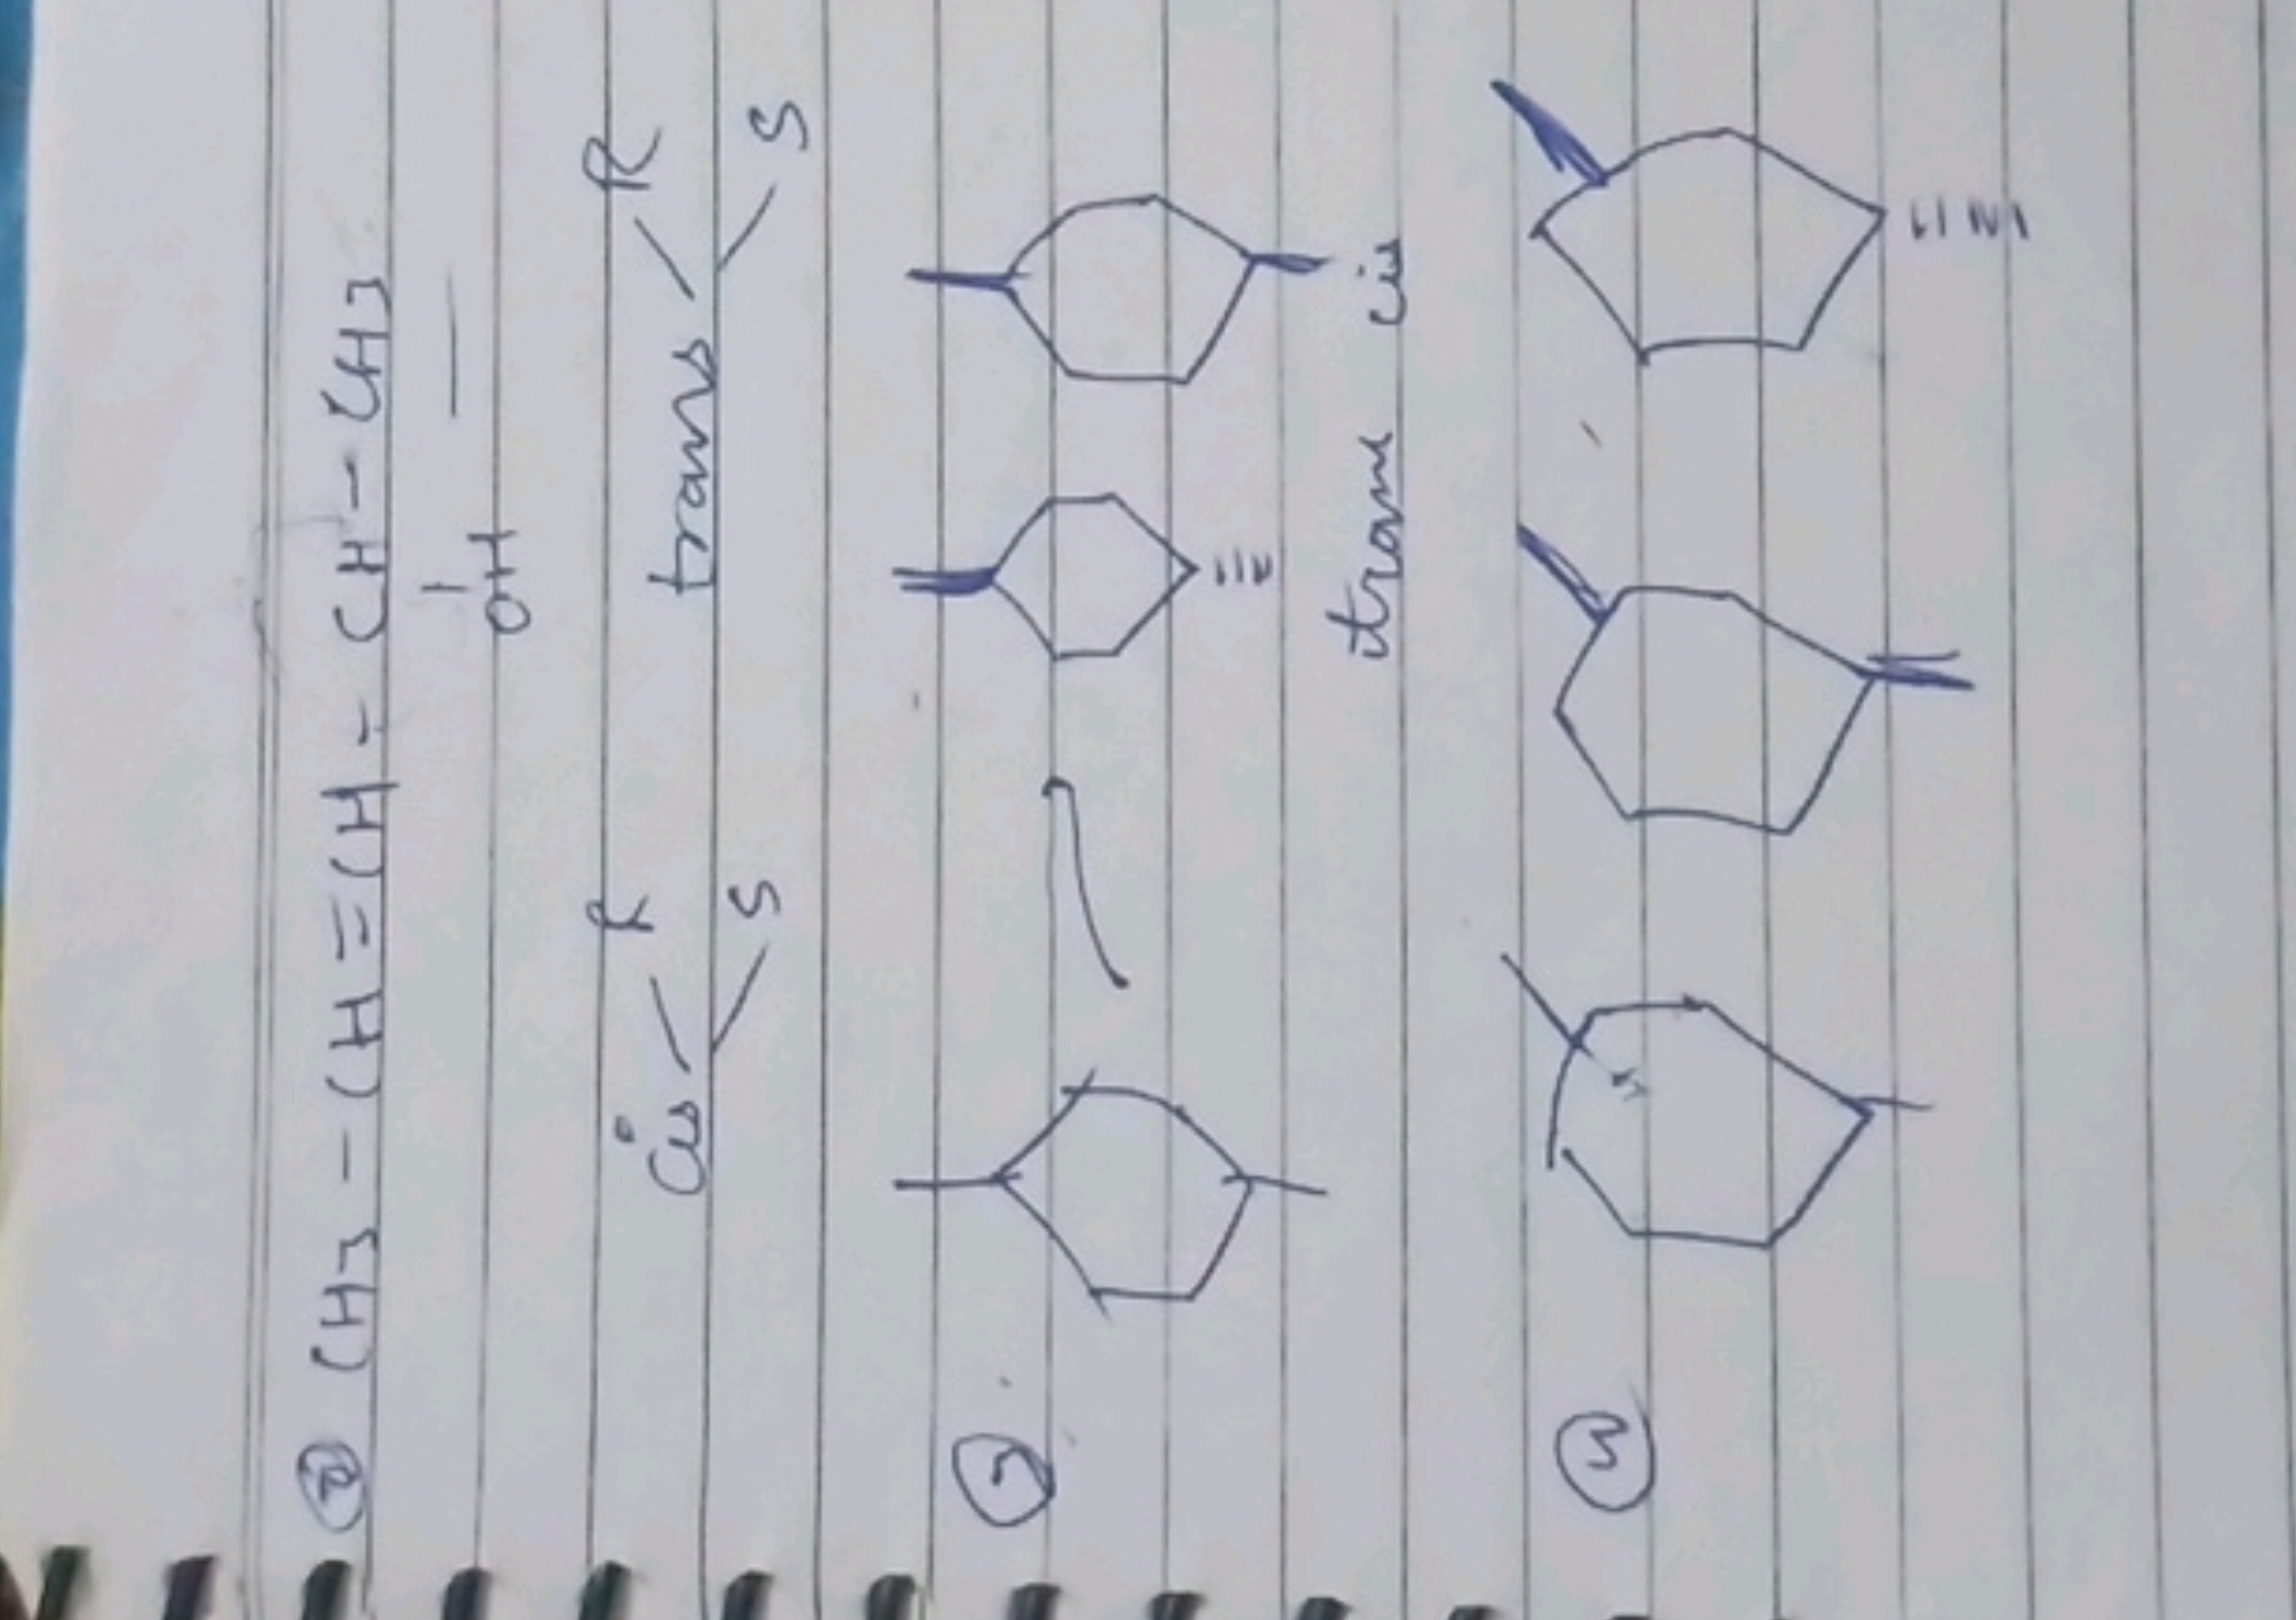 ② CH3 - CH = CH - CH - CH3
OH
cis R trans R
S S
trans cis
③